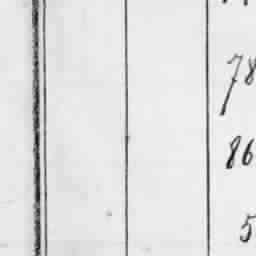 78
86
5